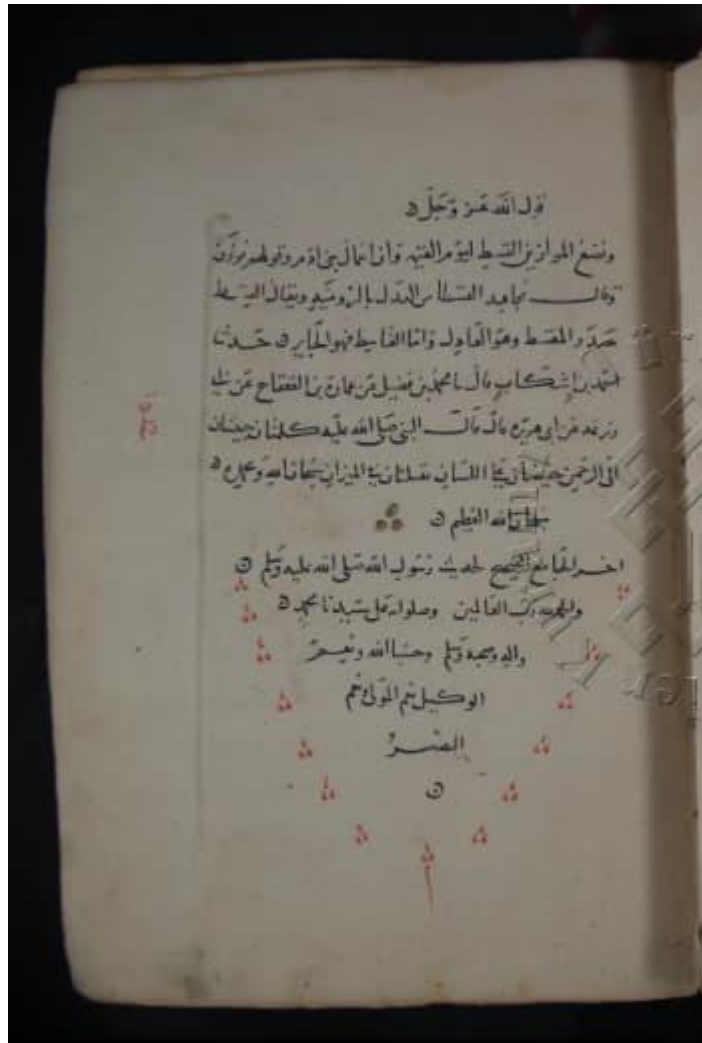 قول الله عز وجل
ونضع الموازين القسط ليوم القيمة وان اعمال بني ادم وقولهم توزن
وقال مجاهد القسطاس العدل بالرومية ويقال القسط
مصدر المقسط وهو العادل واما القاسط فهو الجاير حدثنا
احمد بن اشكاب قال نا محمد بن فضيل عن عمارة بن القعقاع عن ابي
زرعة عن ابي هريرة قال قال النبي صلى الله عليه كلمتان حبيبتان
الى الرحمن خفيفتان على اللسان ثقيلتان في الميزان سبحان الله وبحمده
سبحان الله العظيم
اخر الجامع الصحيح لحديث رسول الله صلى الله عليه وسلم
والحمد لله رب العالمين وصلواته على سيدنا محمد
واله وصحبه وسلم وحسبنا الله ونعم
الوكيل نعم المولى ونعم
النصير